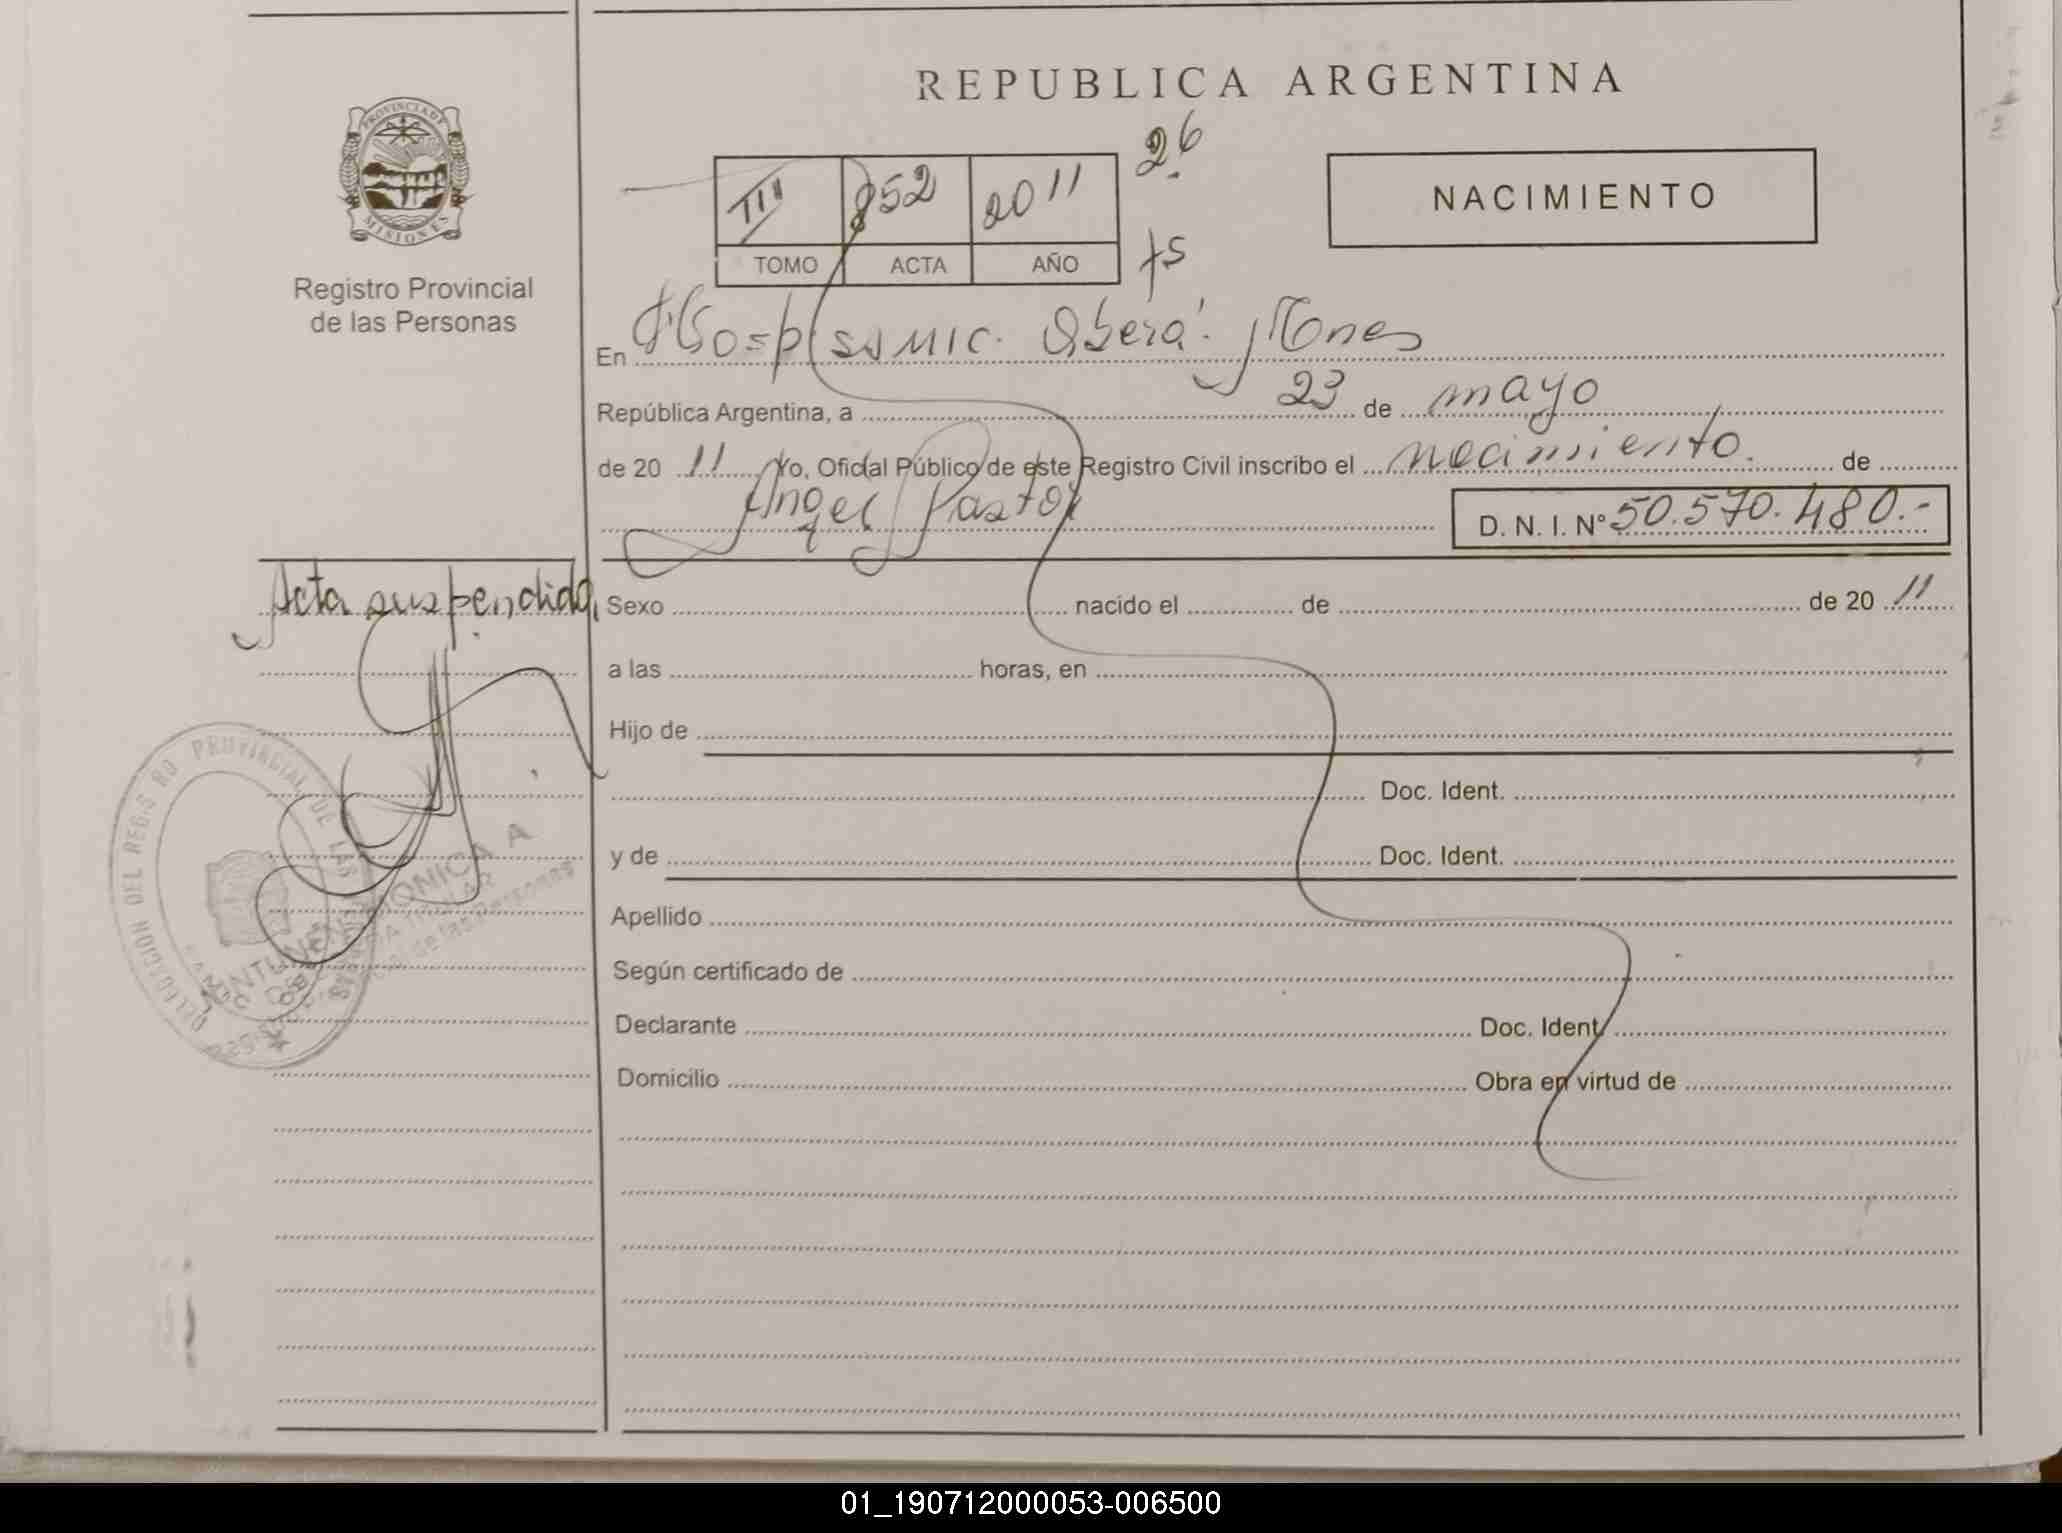 REPUBLICA ARGENTINA
PROVINCIA DE
MISIONES
Registro Provincial
de las Personas
III 852 2011
TOMO ACTA AÑO
26
fs
NACIMIENTO
En Hosp SAMIC. Oberá. Mnes
República Argentina, a 23 de mayo
de 20 11 Yo, Oficial Público de este Registro Civil inscribo el nacimiento. de
Angel Pastor
D. N. I. N° 50.570.480.-
Acta suspendida,
Sexo nacido el de de 20 11
a las horas, en
Hijo de
Doc. Ident.
y de Doc. Ident.
Apellido
Según certificado de
Declarante Doc. Ident.
Domicilio Obra en virtud de
DELEGACION DEL REGISTRO PROVINCIAL DE LAS PERSONAS
MONICA A
TITULAR
de las Personas
01_190712000053-006500